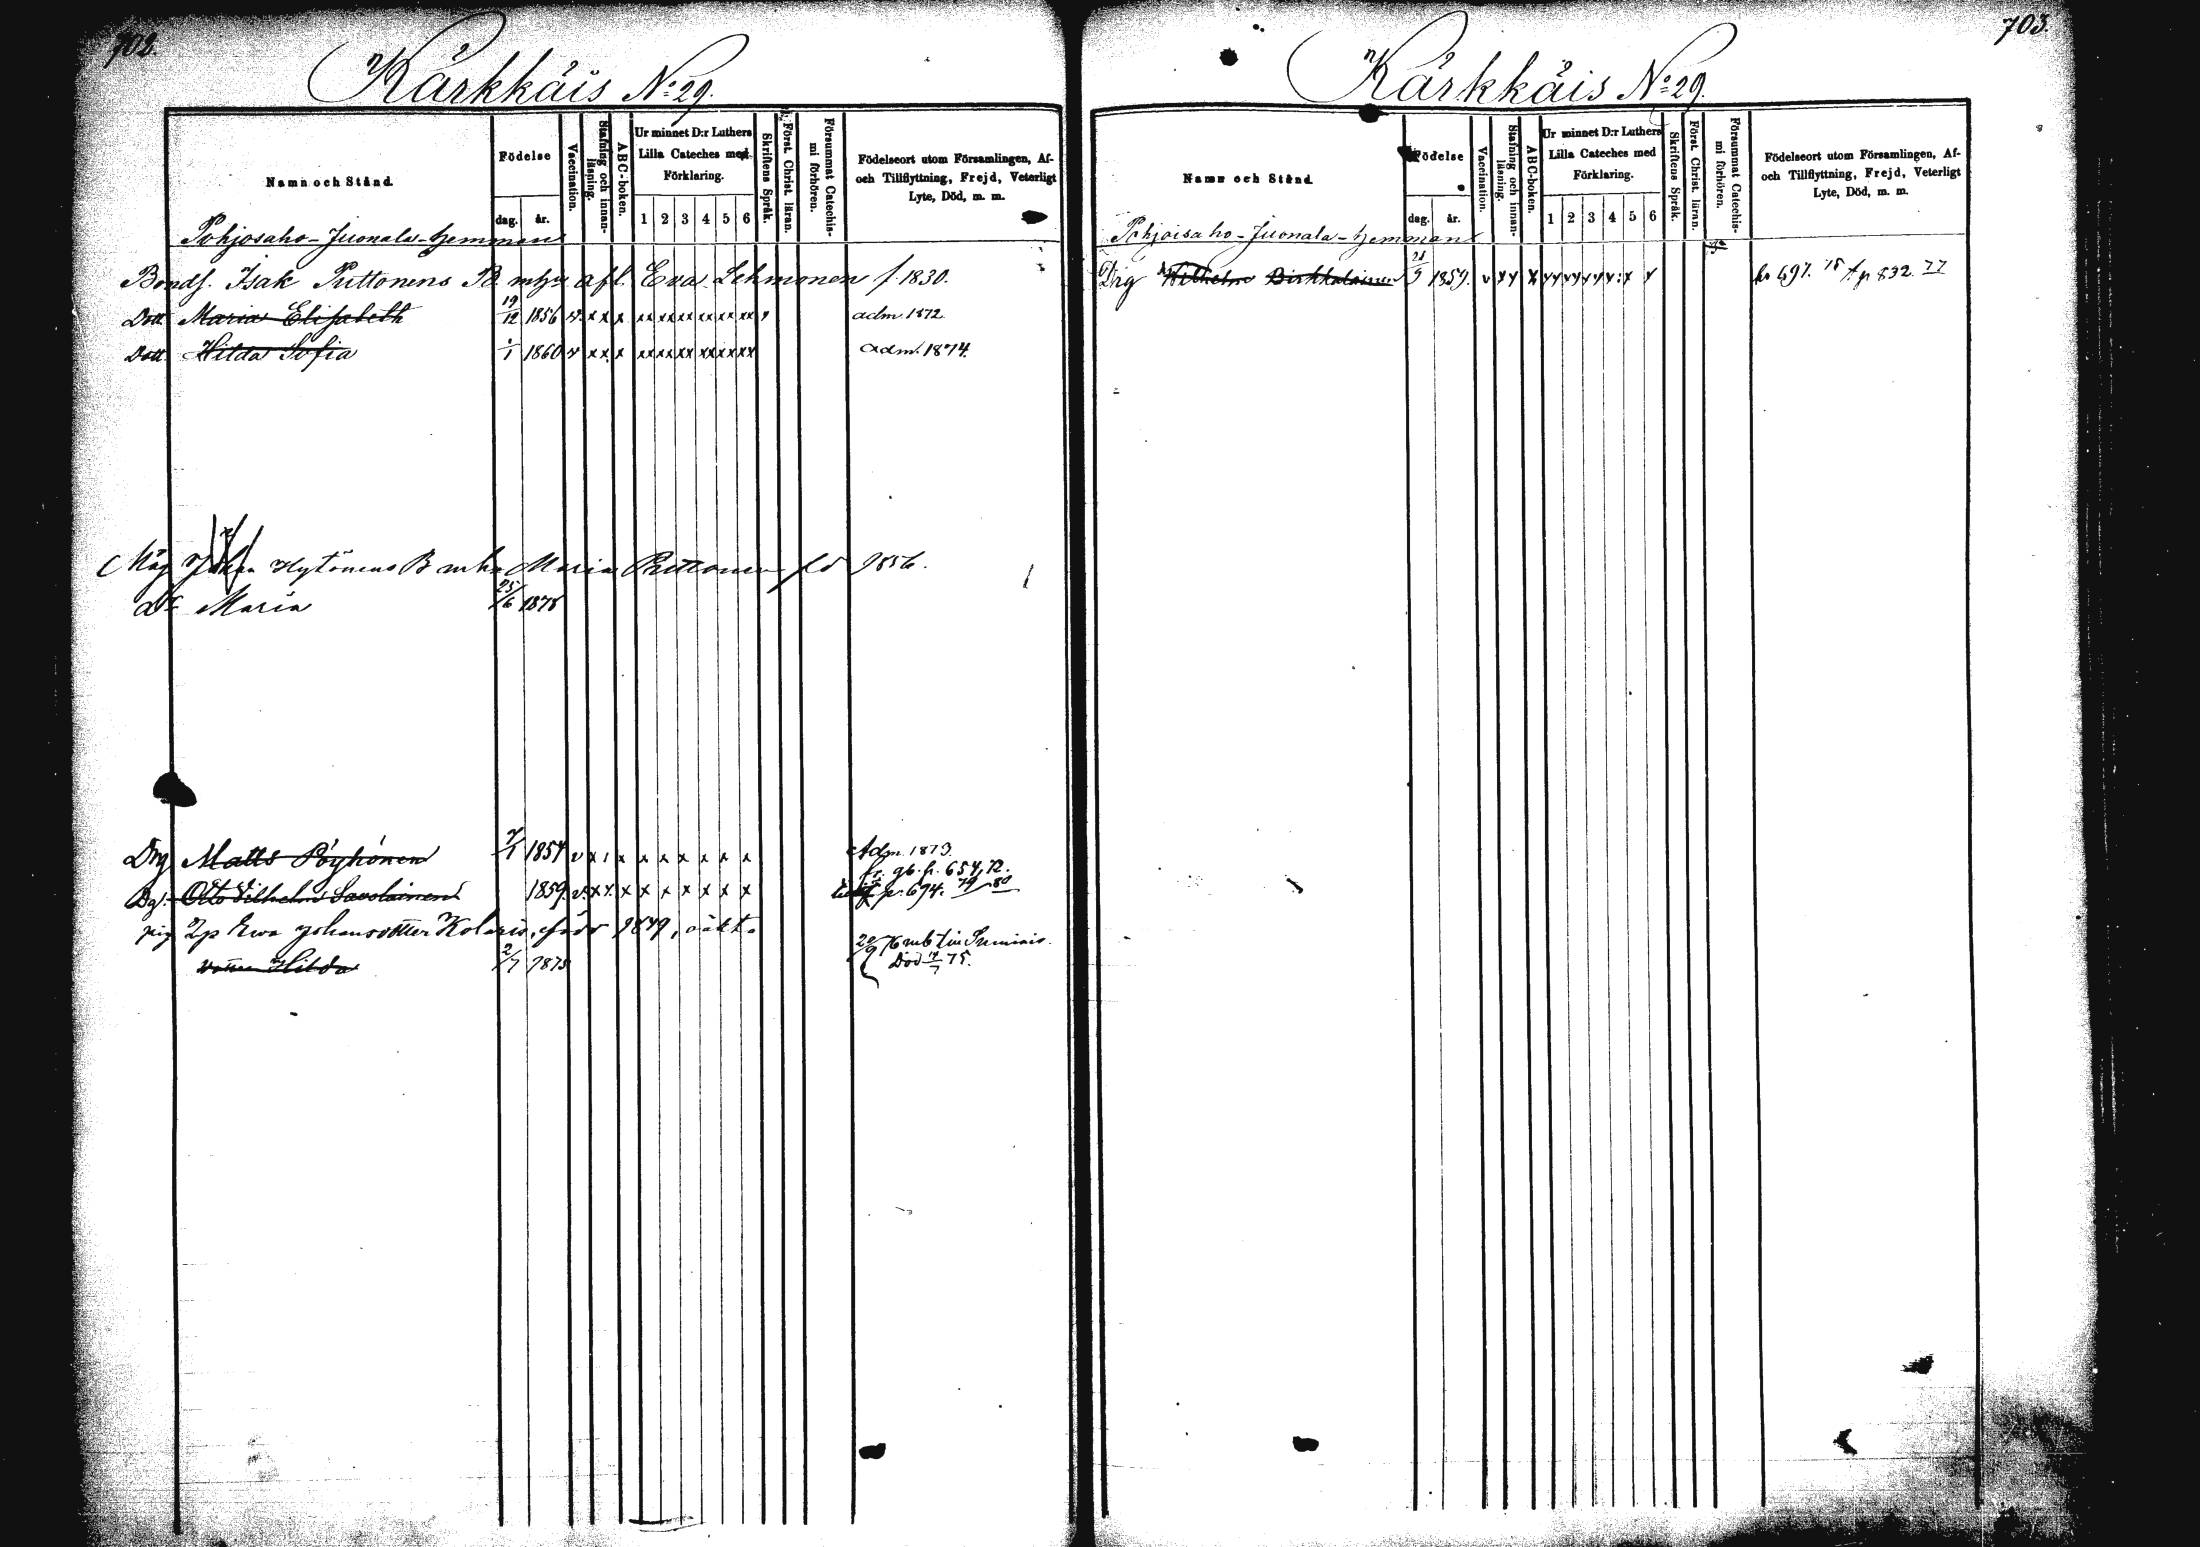 702.
Kärkkäis No 29.
Namn och Stånd.
Födelse
dag. år.
Vaccination.
Stafning och innanläsning.
ABC-boken.
Ur minnet D:r Luthers
Lilla Cateches med
Förklaring.
1 2 3 4 5 6
Skriftens Språk.
Först. Christ. läran.
Försummat Catechismi förhören.
Födelseort utom Församlingen, Af-
och Tillflyttning, Frejd, Veterligt
Lyte, Död, m. m.
Pohjosaho-Juonala-hemman
Bonds. Isak Puttonens B. afl. Eva Lehmonen f. 1830.
Dott. Maria Elisabeth 19/12 1856 v. x x x xx xx xx xx xx xx adm. 1872
Dott. Hilda Sofia 1/1 1860 v xx x xx xx xx xx xx xx adm. 1874.
Måg Johan Hytönens B Maria Puttonen 1856.
Maria 25/6 1878
Drg Matts Pöyhönen 1/1 1854 v x x x x x x x x Adm. 1873.
fr. gb. p. 654, 72.
Otto Vilhelm Savolainen 1859. v. x x. x x x x x x x p. 674. 79 80
pig Ewa Johansdotter 1849,
Hilda 2/7 1875 Död 75.
703.
Kärkkäis No 29.
Namn och Stånd.
Födelse
dag. år.
Vaccination.
Stafning och innanläsning.
ABC-boken.
Ur minnet D:r Luthers
Lilla Cateches med
Förklaring.
1 2 3 4 5 6
Skriftens Språk.
Först. Christ. läran.
Försummat Catechismi förhören.
Födelseort utom Församlingen, Af-
och Tillflyttning, Frejd, Veterligt
Lyte, Död, m. m.
Pohjoisaho-Juonala-hemman
Drg Wilhelm Pirkkalainen 1859. p. 832. 77